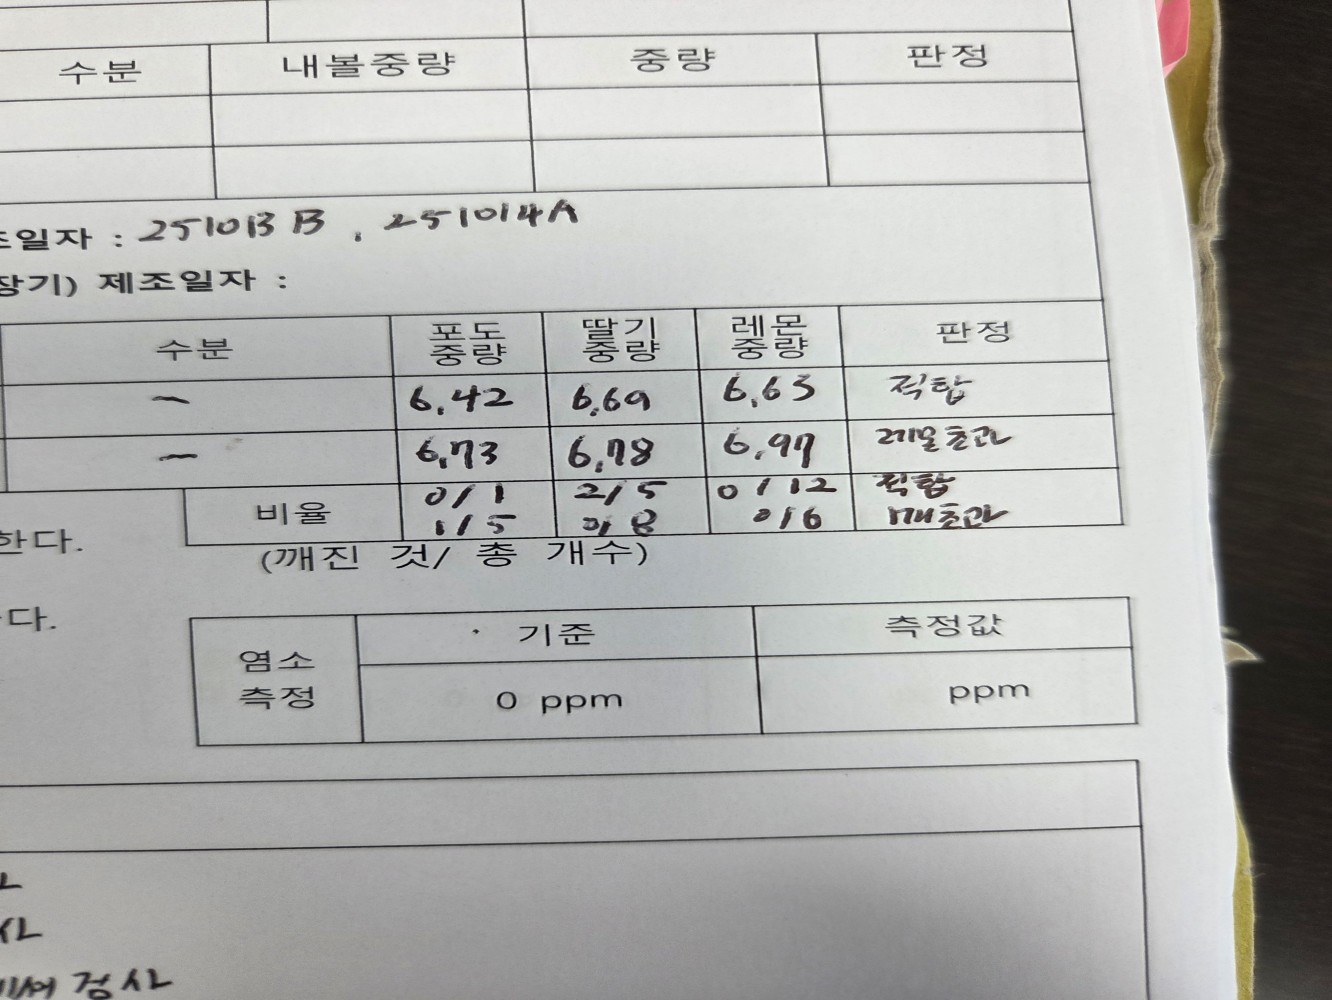 수분 내볼중량 중량 판정
조일자 : 251013 B , 251014A
장기) 제조일자 :
수분 포도 중량 딸기 중량 레몬 중량 판정
- 6.42 6.69 6.63 적합
- 6.73 6.78 6.97 레몬초과
비율 0/1 2/5 0/12 적합
1/5 0/8 0/6 1개초과
한다. (깨진 것/ 총 개수)
다.
염소 측정 기준 측정값
0 ppm ppm
검사